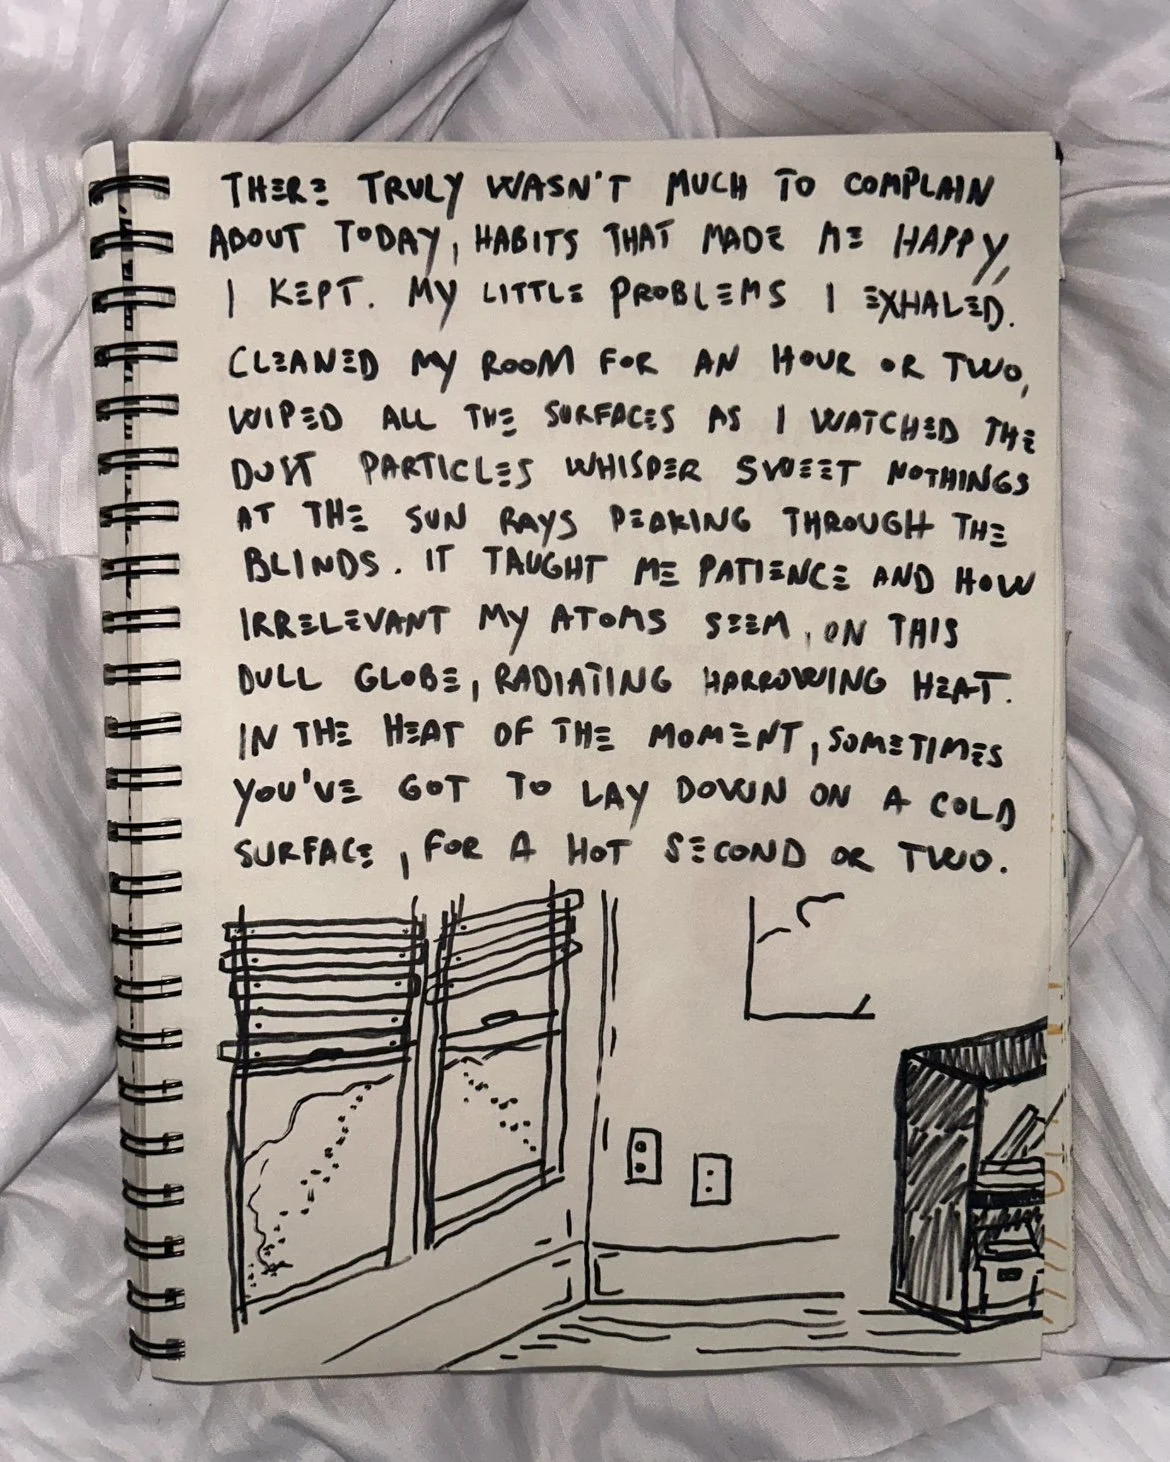 THERE TRULY WASN'T MUCH TO COMPLAIN
ABOUT TODAY, HABITS THAT MADE ME HAPPY,
I KEPT. MY LITTLE PROBLEMS I EXHALED.
CLEANED MY ROOM FOR AN HOUR OR TWO,
WIPED ALL THE SURFACES AS I WATCHED THE
DUST PARTICLES WHISPER SWEET NOTHINGS
AT THE SUN RAYS PEAKING THROUGH THE
BLINDS. IT TAUGHT ME PATIENCE AND HOW
IRRELEVANT MY ATOMS SEEM, ON THIS
DULL GLOBE, RADIATING HARROWING HEAT.
IN THE HEAT OF THE MOMENT, SOMETIMES
YOU'VE GOT TO LAY DOWN ON A COLD
SURFACE, FOR A HOT SECOND OR TWO.